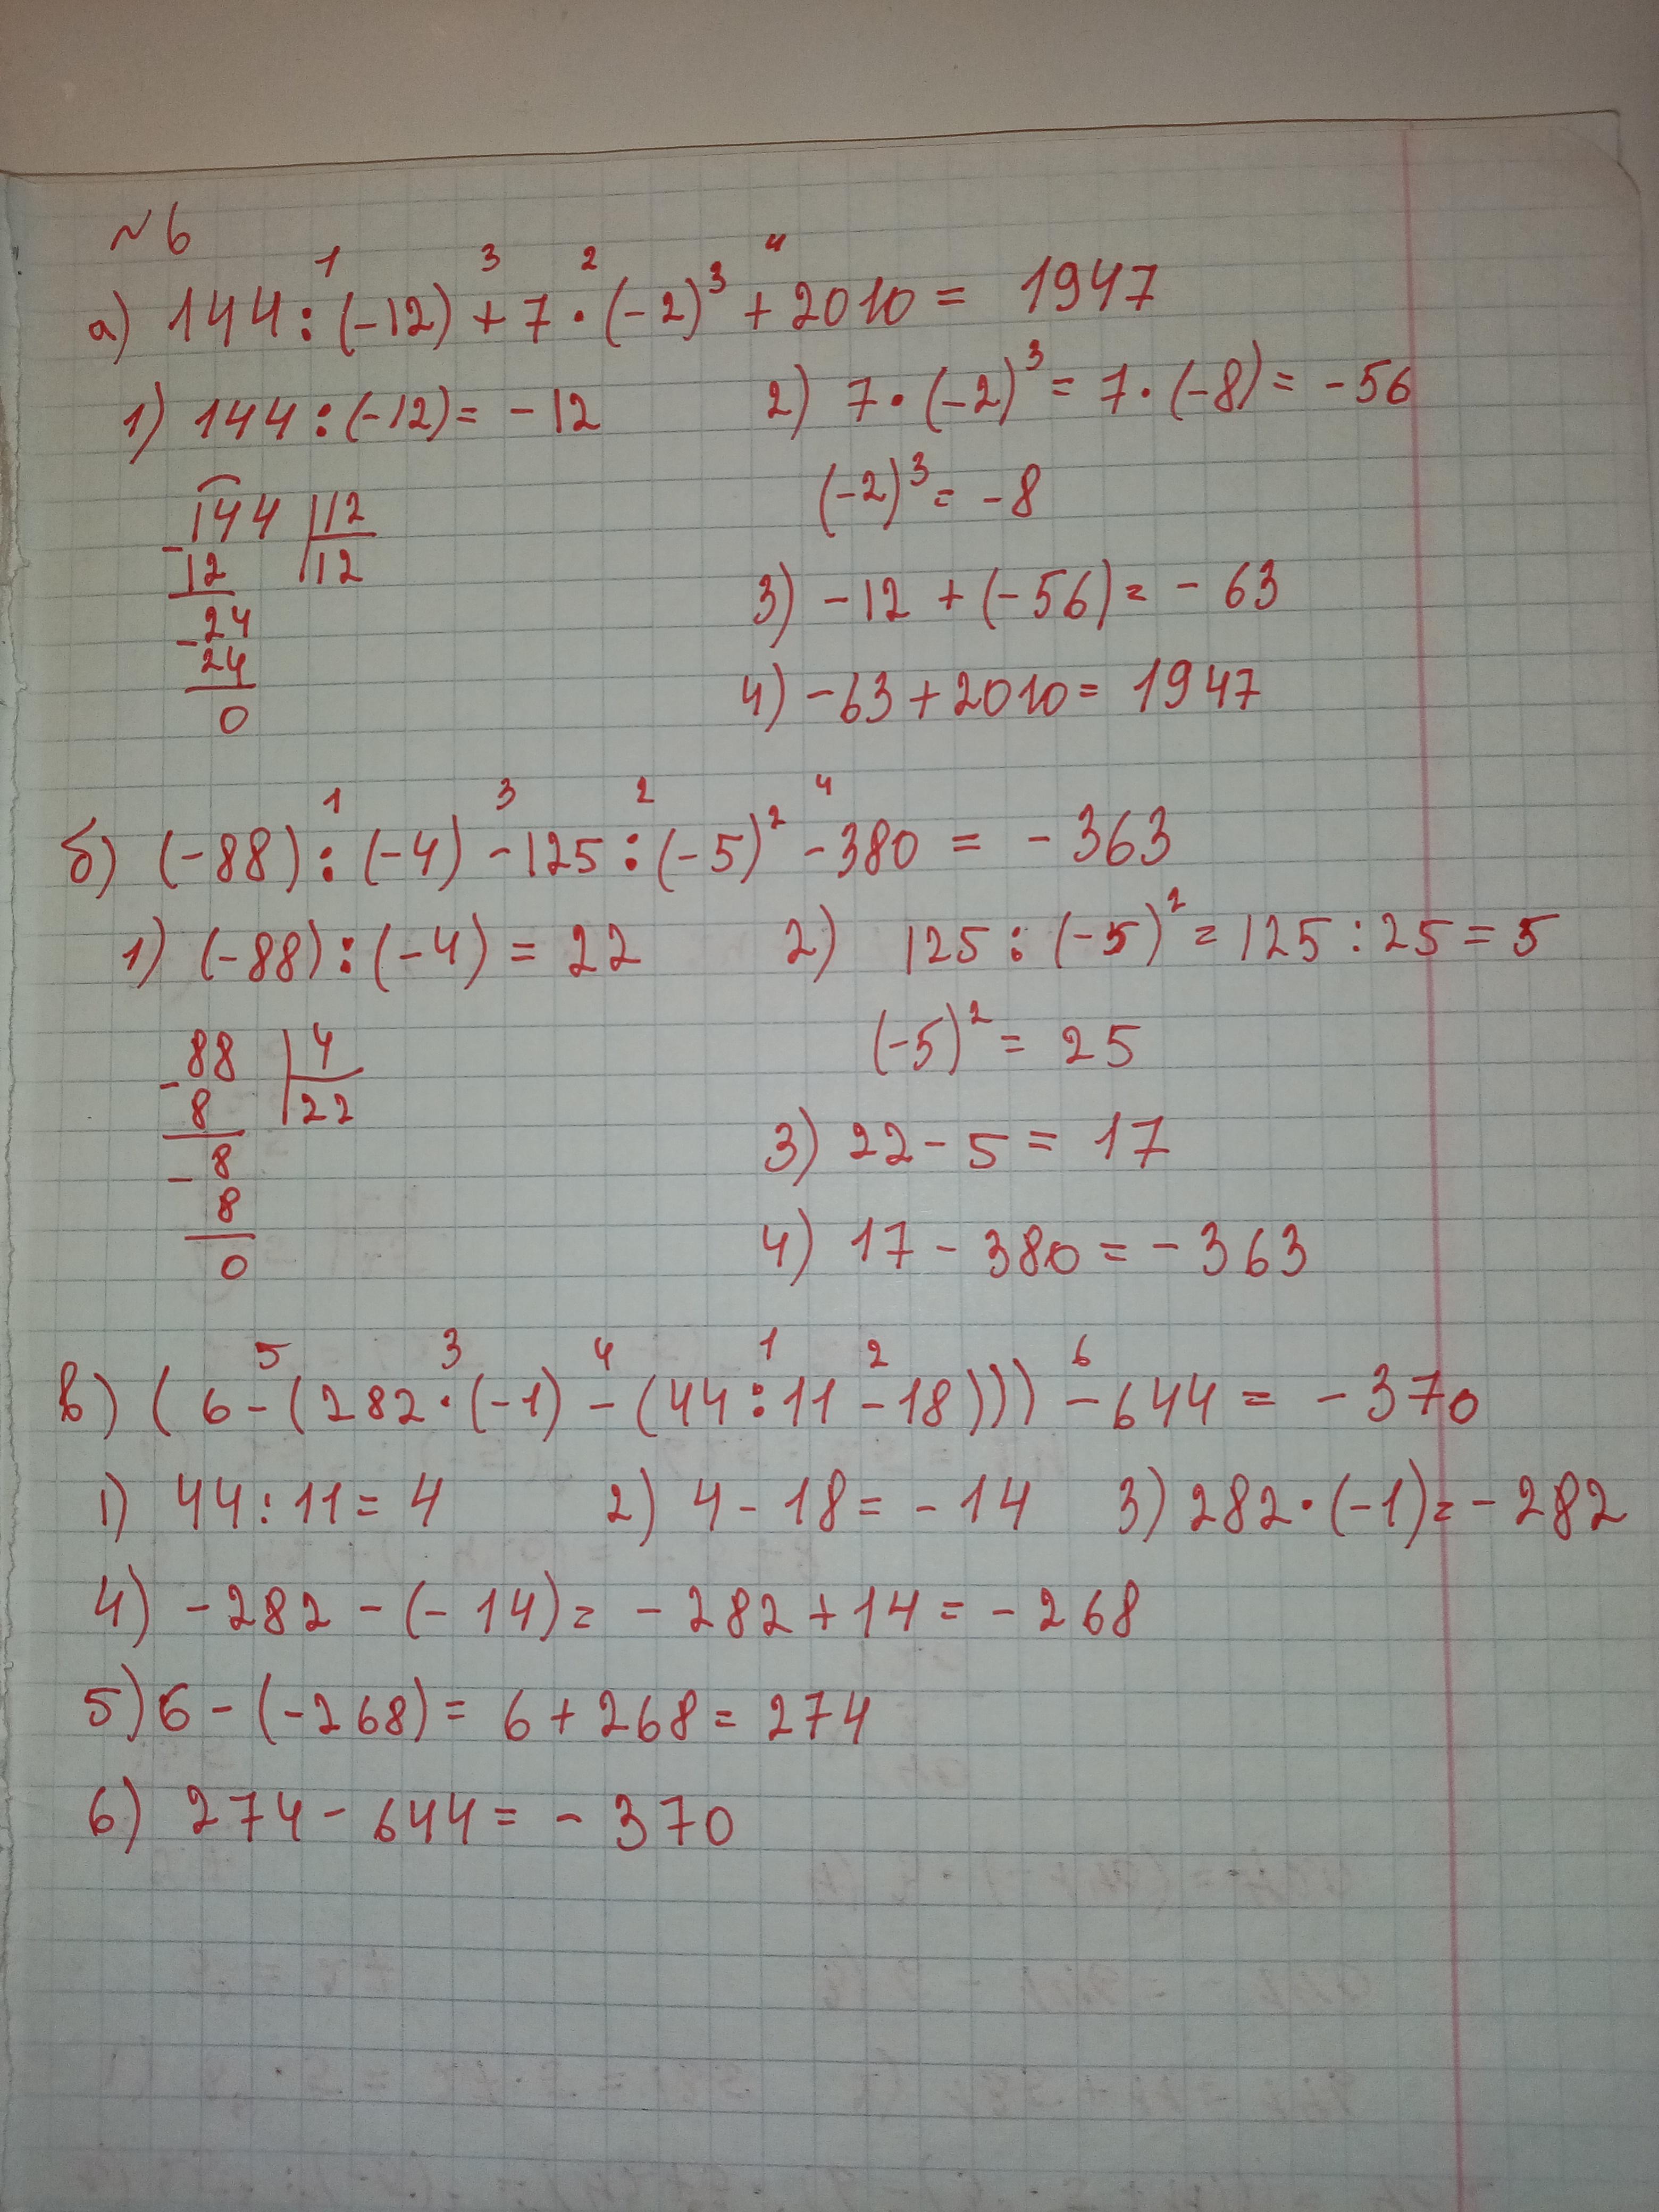 №6
1 3 2 4
а) 144 : (-12) + 7 · (-2)³ + 2010 = 1947
1) 144 : (-12) = - 12
2) 7 · (-2)³ = 7 · (-8) = - 56
(-2)³ = - 8
144 12
- 12 12
- 24
24
0
3) - 12 + (-56) = - 63
4) - 63 + 2010 = 1947
1 3 2 4
б) (-88) : (-4) - 125 : (-5)² - 380 = - 363
1) (-88) : (-4) = 22
2) 125 : (-5)² = 125 : 25 = 5
(-5)² = 25
88 4
- 8 22
- 8
8
0
3) 22 - 5 = 17
4) 17 - 380 = - 363
5 3 4 1 2 6
в) (6 - (282 · (-1) - (44 : 11 - 18))) - 644 = - 370
1) 44 : 11 = 4 2) 4 - 18 = - 14 3) 282 · (-1) = - 282
4) - 282 - (- 14) = - 282 + 14 = - 268
5) 6 - (-268) = 6 + 268 = 274
6) 274 - 644 = - 370